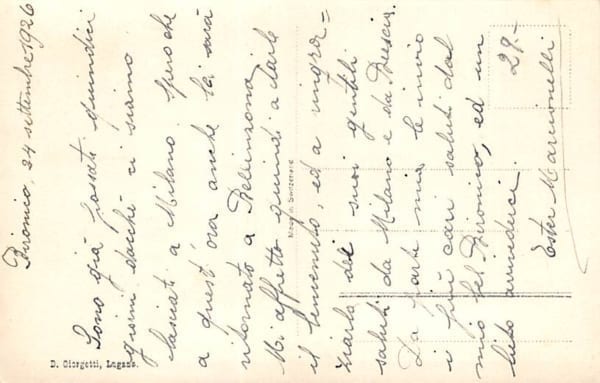 Bironico, 24 settembre 1926
Sono già passati quindici
giorni dacchè ci siamo
lasciati a Milano. Spero che
a quest'ora anche lei sarà
ritornato a Bellinzona.
M'affretto quindi a darle
il benvenuto, ed a ringra=
ziarla dei suoi gentili
saluti da Milano e da Brescia.
Da parte mia le invio
i più cari saluti dal
mio bel Bironico, ed un
lieto arrivederci.
Ester
29.-
Made in Switzerland
D. Giorgetti, Lugano.